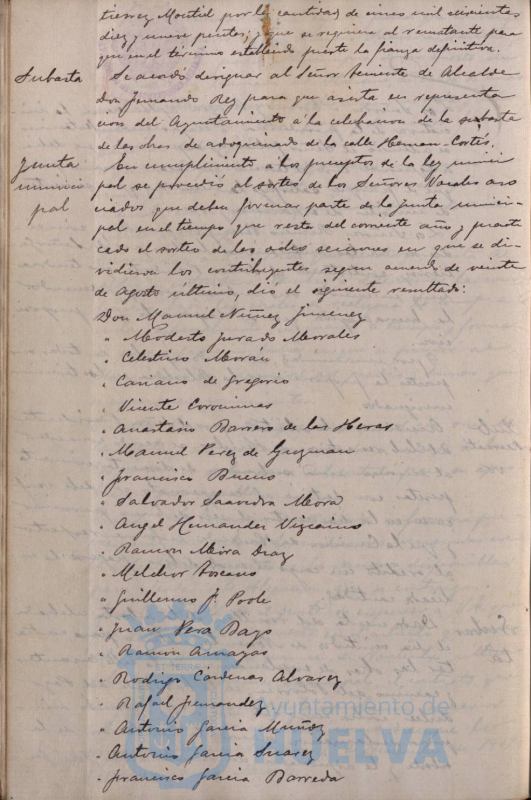 tierrez Montiel por la cantidad de cinco mil seiscientas
diez y nueve pesetas, y que se requiera al rematante para
que en el término establecido preste la fianza definitiva.
Subasta
Se acordó designar al Señor Teniente de Alcalde
Don Fernando Rey para que asista en representa
cion del Ayuntamiento á la celebracion de la subasta
de las obras de adoquinado de la calle Hernan-Cortés.
Junta
munici
pal
En cumplimiento á los preceptos de la ley munici
pal se procedió al sorteo de los Señores Vocales aso
ciados que deben formar parte de la Junta munici-
pal en el tiempo que resta del corriente año y practi
cado el sorteo de las ocho secciones en que se di-
vidieron los contribuyentes segun acuerdo de veinte
de Agosto último, dió el siguiente resultado:
Don Manuel Nuñez Jimenez
" Modesto Jurado Morales
" Celestino Moran
" Cariano de Gregorio
" Vicente Corominas
" Anastasio Barrero de las Heras
" Manuel Perez de Guzman
" Francisco Bueno
" Salvador Saavedra Mora
" Angel Hernandez Vizcaino
" Ramon Mora Diaz
" Melchor Toscano
" Guillermo J. Poole
" Juan Vera Bago
" Ramon Amayas
" Rodrigo Cárdenas Alvarez
" Rafael Fernandez
" Antonio Garcia Muñoz
" Antonio Garcia Suarez
" Francisco Garcia Barreda
Ayuntamiento de
HUELVA